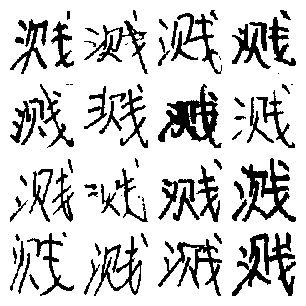 溅溅溅溅
溅溅溅溅
溅溅溅溅
溅溅溅溅